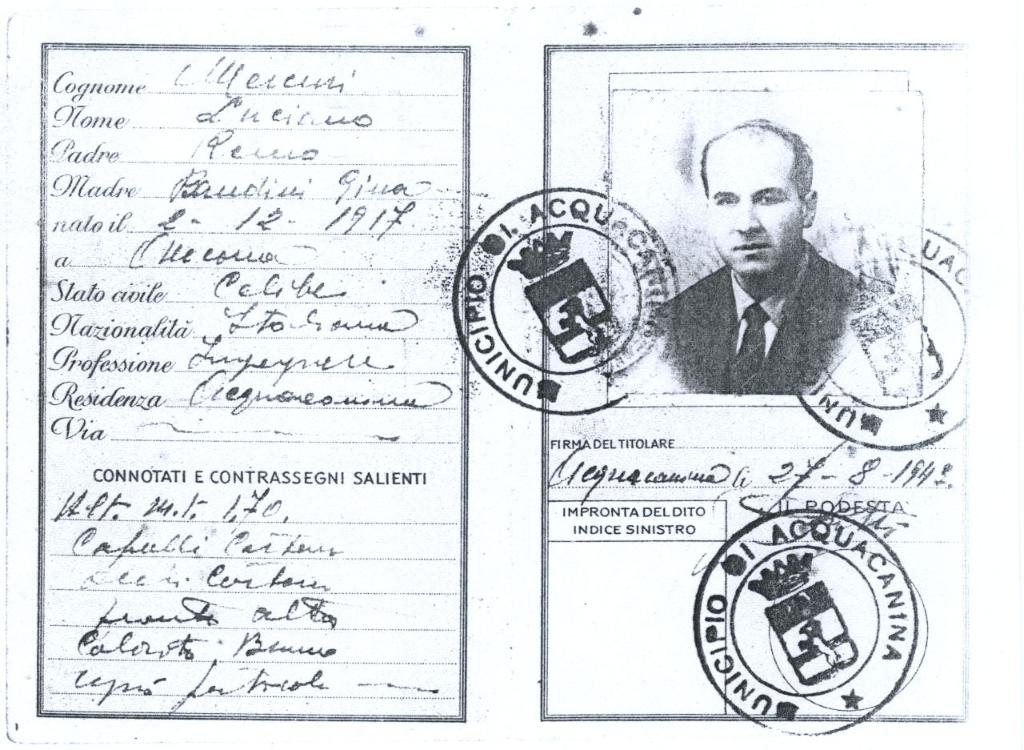 Cognome Mercuri
Nome Luciano
Padre Remo
Madre Bandini Gina
nato il 2 - 12 - 1917
a
Stato civile Celibe
Nazionalità Italiana
Professione Ingegnere
Residenza Acquacanina
Via
CONNOTATI E CONTRASSEGNI SALIENTI
Alt. m.t. 1,70.
Capelli Castani
occhi Castani
fronte alta
Colorito Bruno
segni particolari
MUNICIPIO DI ACQUACANINA
FIRMA DEL TITOLARE
Acquacanina li 27 - 8 - 194
IMPRONTA DEL DITO
INDICE SINISTRO
IL PODESTÀ
MUNICIPIO DI ACQUACANINA